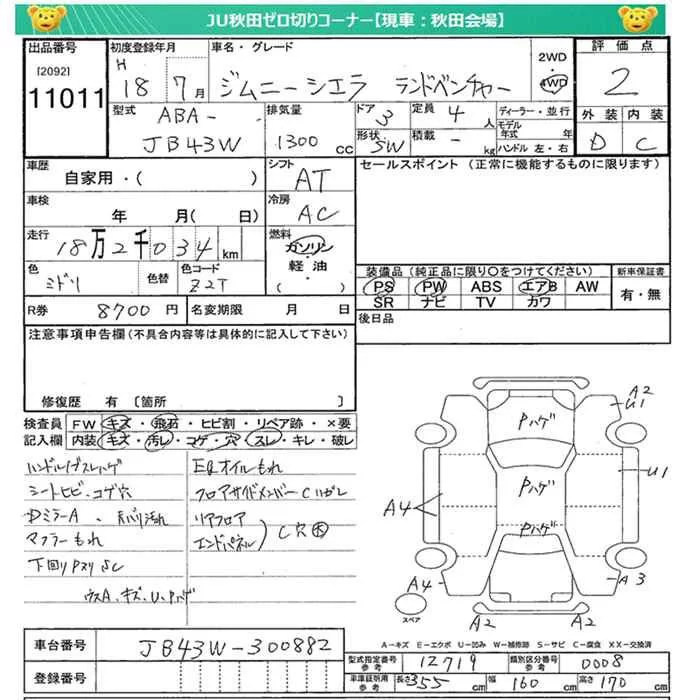 JU秋田ゼロ切りコーナー【現車：秋田会場】
出品番号 [2092] 11011
初度登録年月 H 18 7月
車名・グレード ジムニーシエラ ランドベンチャー
2WD 4WD
評価点 2
外装 D 内装 C
型式 ABA- JB43W
排気量 1300 cc
ドア 3
形状 5W
定員 4 人
積載 - kg
ディーラー・並行
モデル年式 年
ハンドル 左・右
車歴 自家用・( )
シフト AT
セールスポイント (正常に機能するものに限ります)
車検 年 月( 日)
冷房 AC
走行 18万2千034 km
燃料 ガソリン 軽・油 ( )
色 ミドリ 色替
色コード Z2T
装備品 (純正品に限り○をつけてください)
新車保証書 有・無
PS PW ABS エアB AW
SR ナビ TV カワ
R券 8700 円
名変期限 月 日
後日品
注意事項申告欄 (不具合内容等は具体的に記入して下さい)
修復歴 有 〔箇所 〕
検査員記入欄
FW キズ・飛石・ヒビ割・リペア跡・×要
内装 キズ・汚レ・コゲ・穴・スレ・キレ・破レ
シートヒビ・コゲ穴
DミラーA
マフラーもれ
下回り
ウスA、キズ、U、Pハゲ
EgオイルもれI
フロアサイドメンバーC
リアフロア
エンドパネル
C穴 大
Pハゲ
Pハゲ
Pハゲ
A2
U1
U1
A4
A4
A3
A2
A2
スペア
A－キズ E－エクボ U－凹み W－補修跡 S－サビ C－腐食 XX－交換済
車台番号 JB43W-300882
登録番号
型式指定番号 参考 12719
類別区分番号 参考 0008
車庫証明用 参考 長さ 355 cm 幅 160 cm 高さ 170 cm